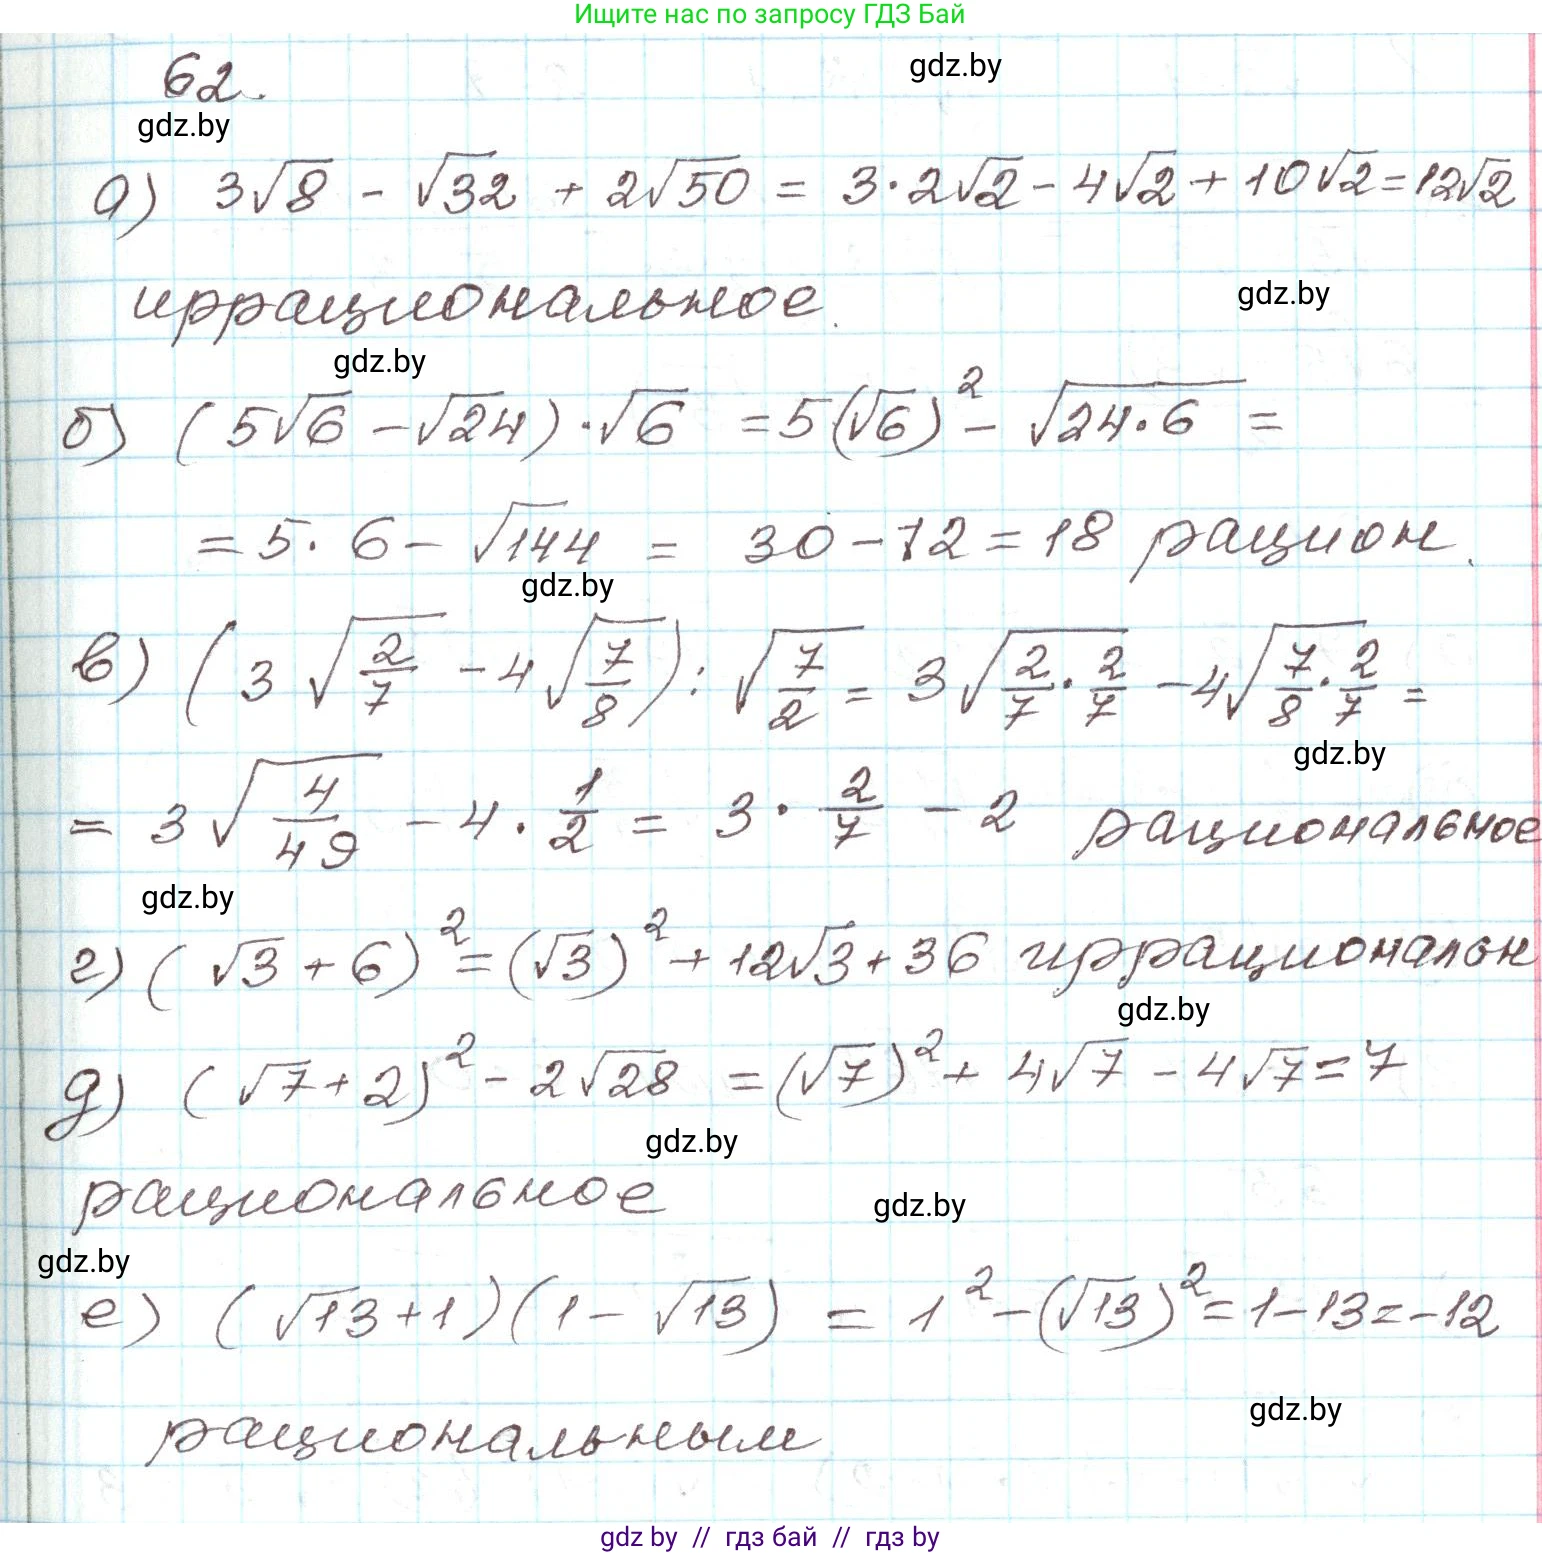 Ищите нас по запросу ГДЗ Бай
62.
gdz.by
gdz.by
а) 3√8 - √32 + 2√50 = 3·2√2 - 4√2 + 10√2 = 12√2
иррациональное.
gdz.by
gdz.by
б) (5√6 - √24)·√6 = 5(√6)² - √24·6 =
= 5·6 - √144 = 30 - 12 = 18 рацион.
gdz.by
в) (3√2/7 - 4√7/8) : √7/2 = 3√2/7·2/7 - 4√7/8·2/7 =
gdz.by
= 3√4/49 - 4·1/2 = 3·2/7 - 2 рациональное
gdz.by
г) (√3 + 6)² = (√3)² + 12√3 + 36 иррациональн
gdz.by
д) (√7 + 2)² - 2√28 = (√7)² + 4√7 - 4√7 = 7
gdz.by
рациональное
gdz.by
gdz.by
е) (√13 + 1)(1 - √13) = 1² - (√13)² = 1 - 13 = -12
gdz.by
рациональным
gdz by // гдз бай // гдз by